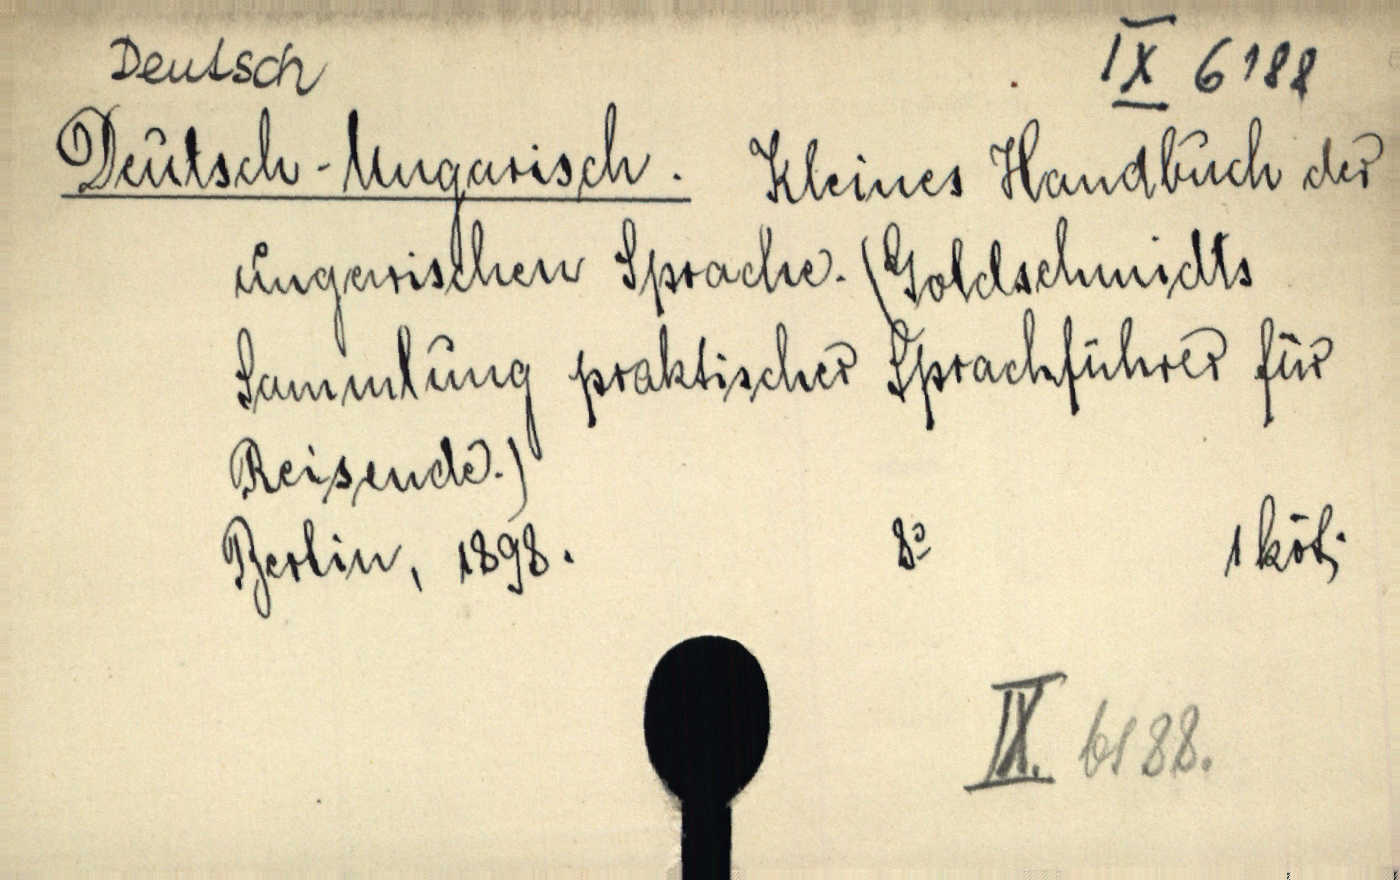 Deutsch
IX 6188
Deutsch-Ungarisch. Kleines Handbuch der
ungarischen Sprache. (Goldschmidts
Sammlung praktischer Sprachführer für
Reisende.)
Berlin, 1898. 8° 1 köt.
IX. 6188.